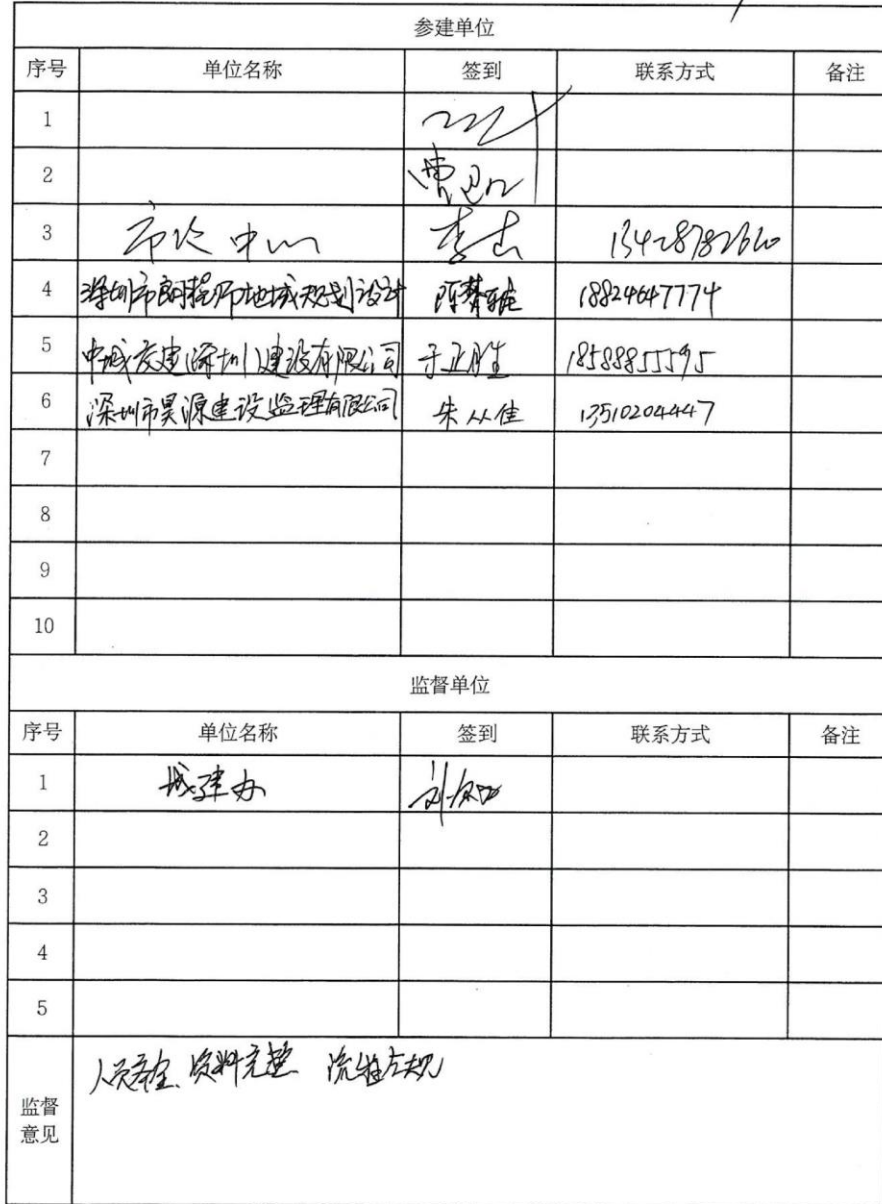 参建单位
序号 单位名称 签到 联系方式 备注
1
2
3 中心 李杰
4 深圳市朗程师地域规划设计 陈梦雅 18824647774
5 中城发建(深圳)建设有限公司 于正胜 18588855595
6 深圳市昊源建设监理有限公司 朱从佳 13510204447
7
8
9
10
监督单位
序号 单位名称 签到 联系方式 备注
1 城建办
2
3
4
5
监督意见 人员齐全、资料完整 流程合规